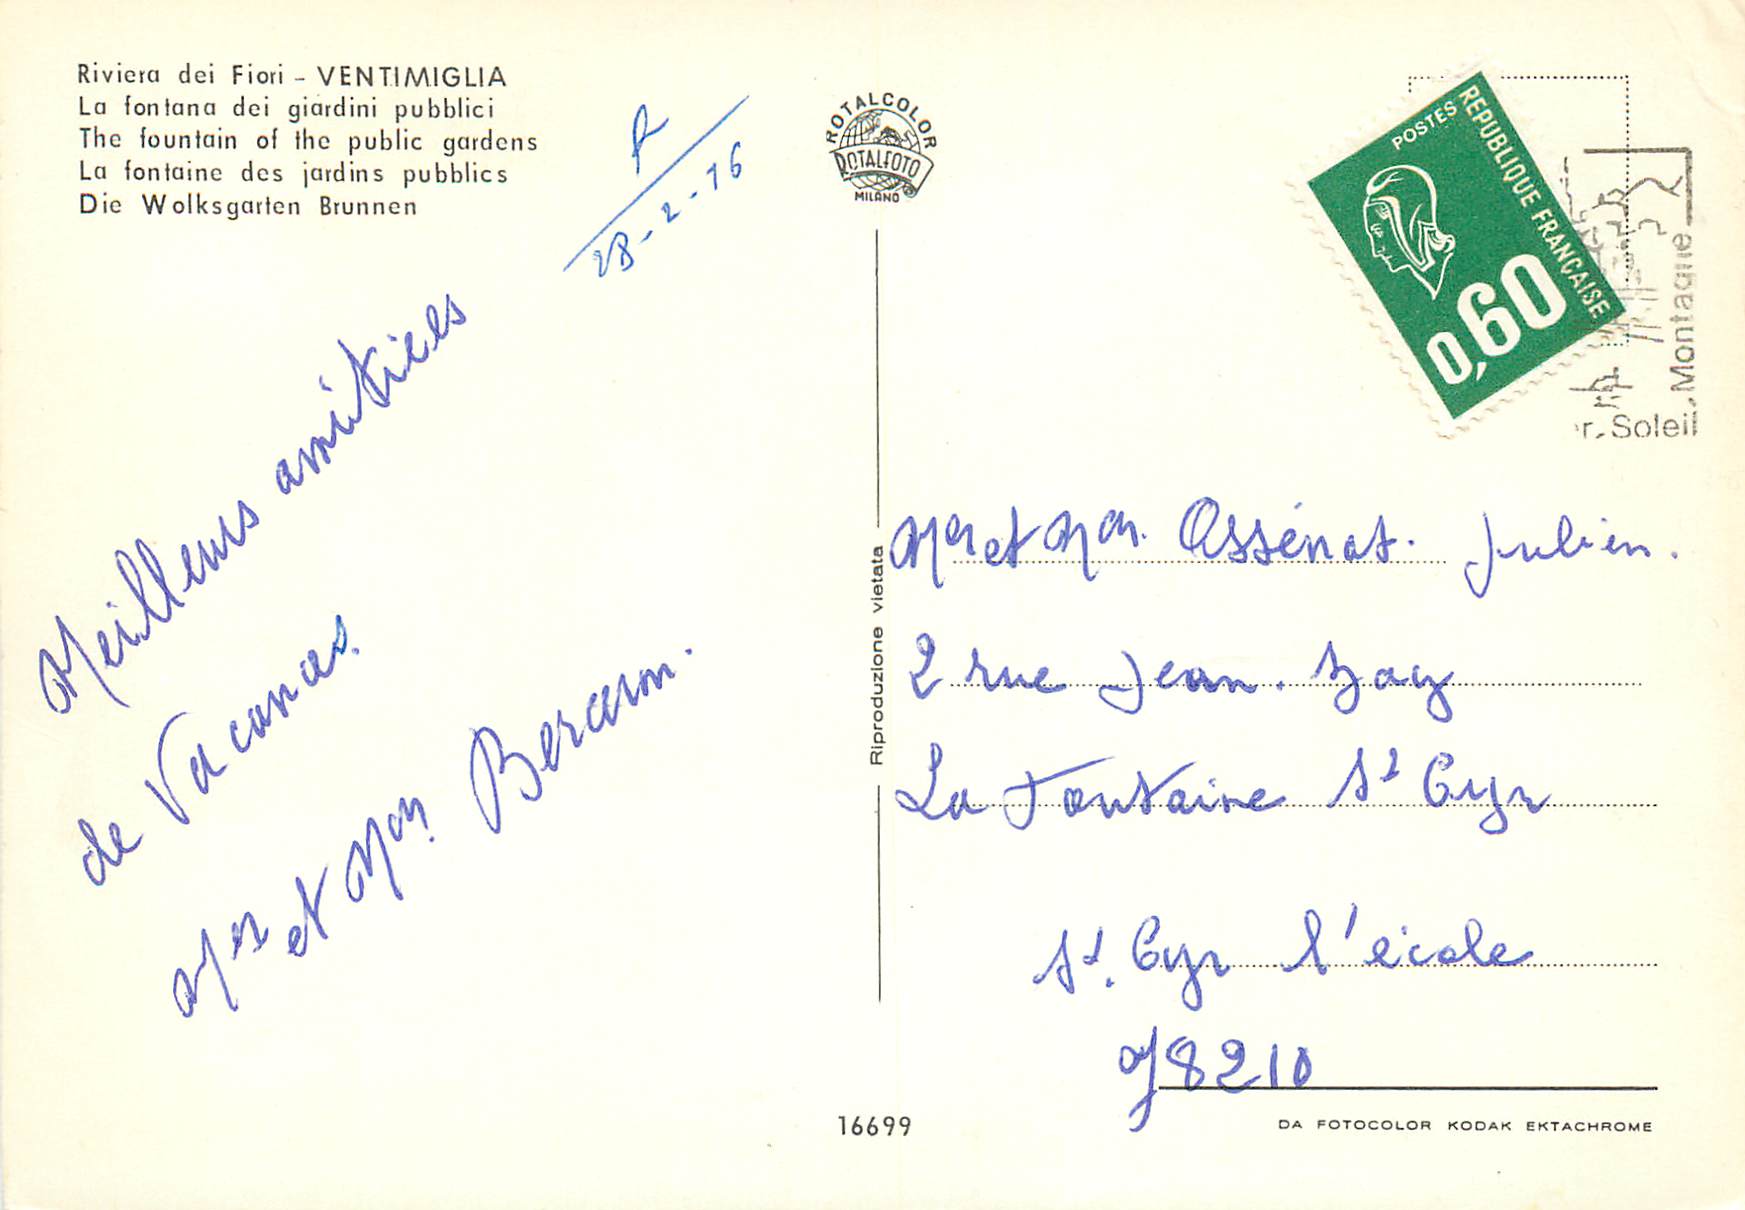 Riviera dei Fiori - VENTIMIGLIA
La fontana dei giardini pubblici
The fountain of the public gardens
La fontaine des jardins pubblics
Die Wolksgarten Brunnen
R
28-2-76
Meilleurs amitiées
de Vacances.
Mer et Mm. Berarm.
ROTALCOLOR
ROTALFOTO
MILANO
Riproduzione vietata
16699
POSTES
REPUBLIQUE FRANCAISE
0,60
Montagne
r, Soleil,
Mer et Mm. Assénat. Julien.
2 rue Jean. Zay
La Fontaine St Cyr
St. Cyr l'école
78210
DA FOTOCOLOR KODAK EKTACHROME